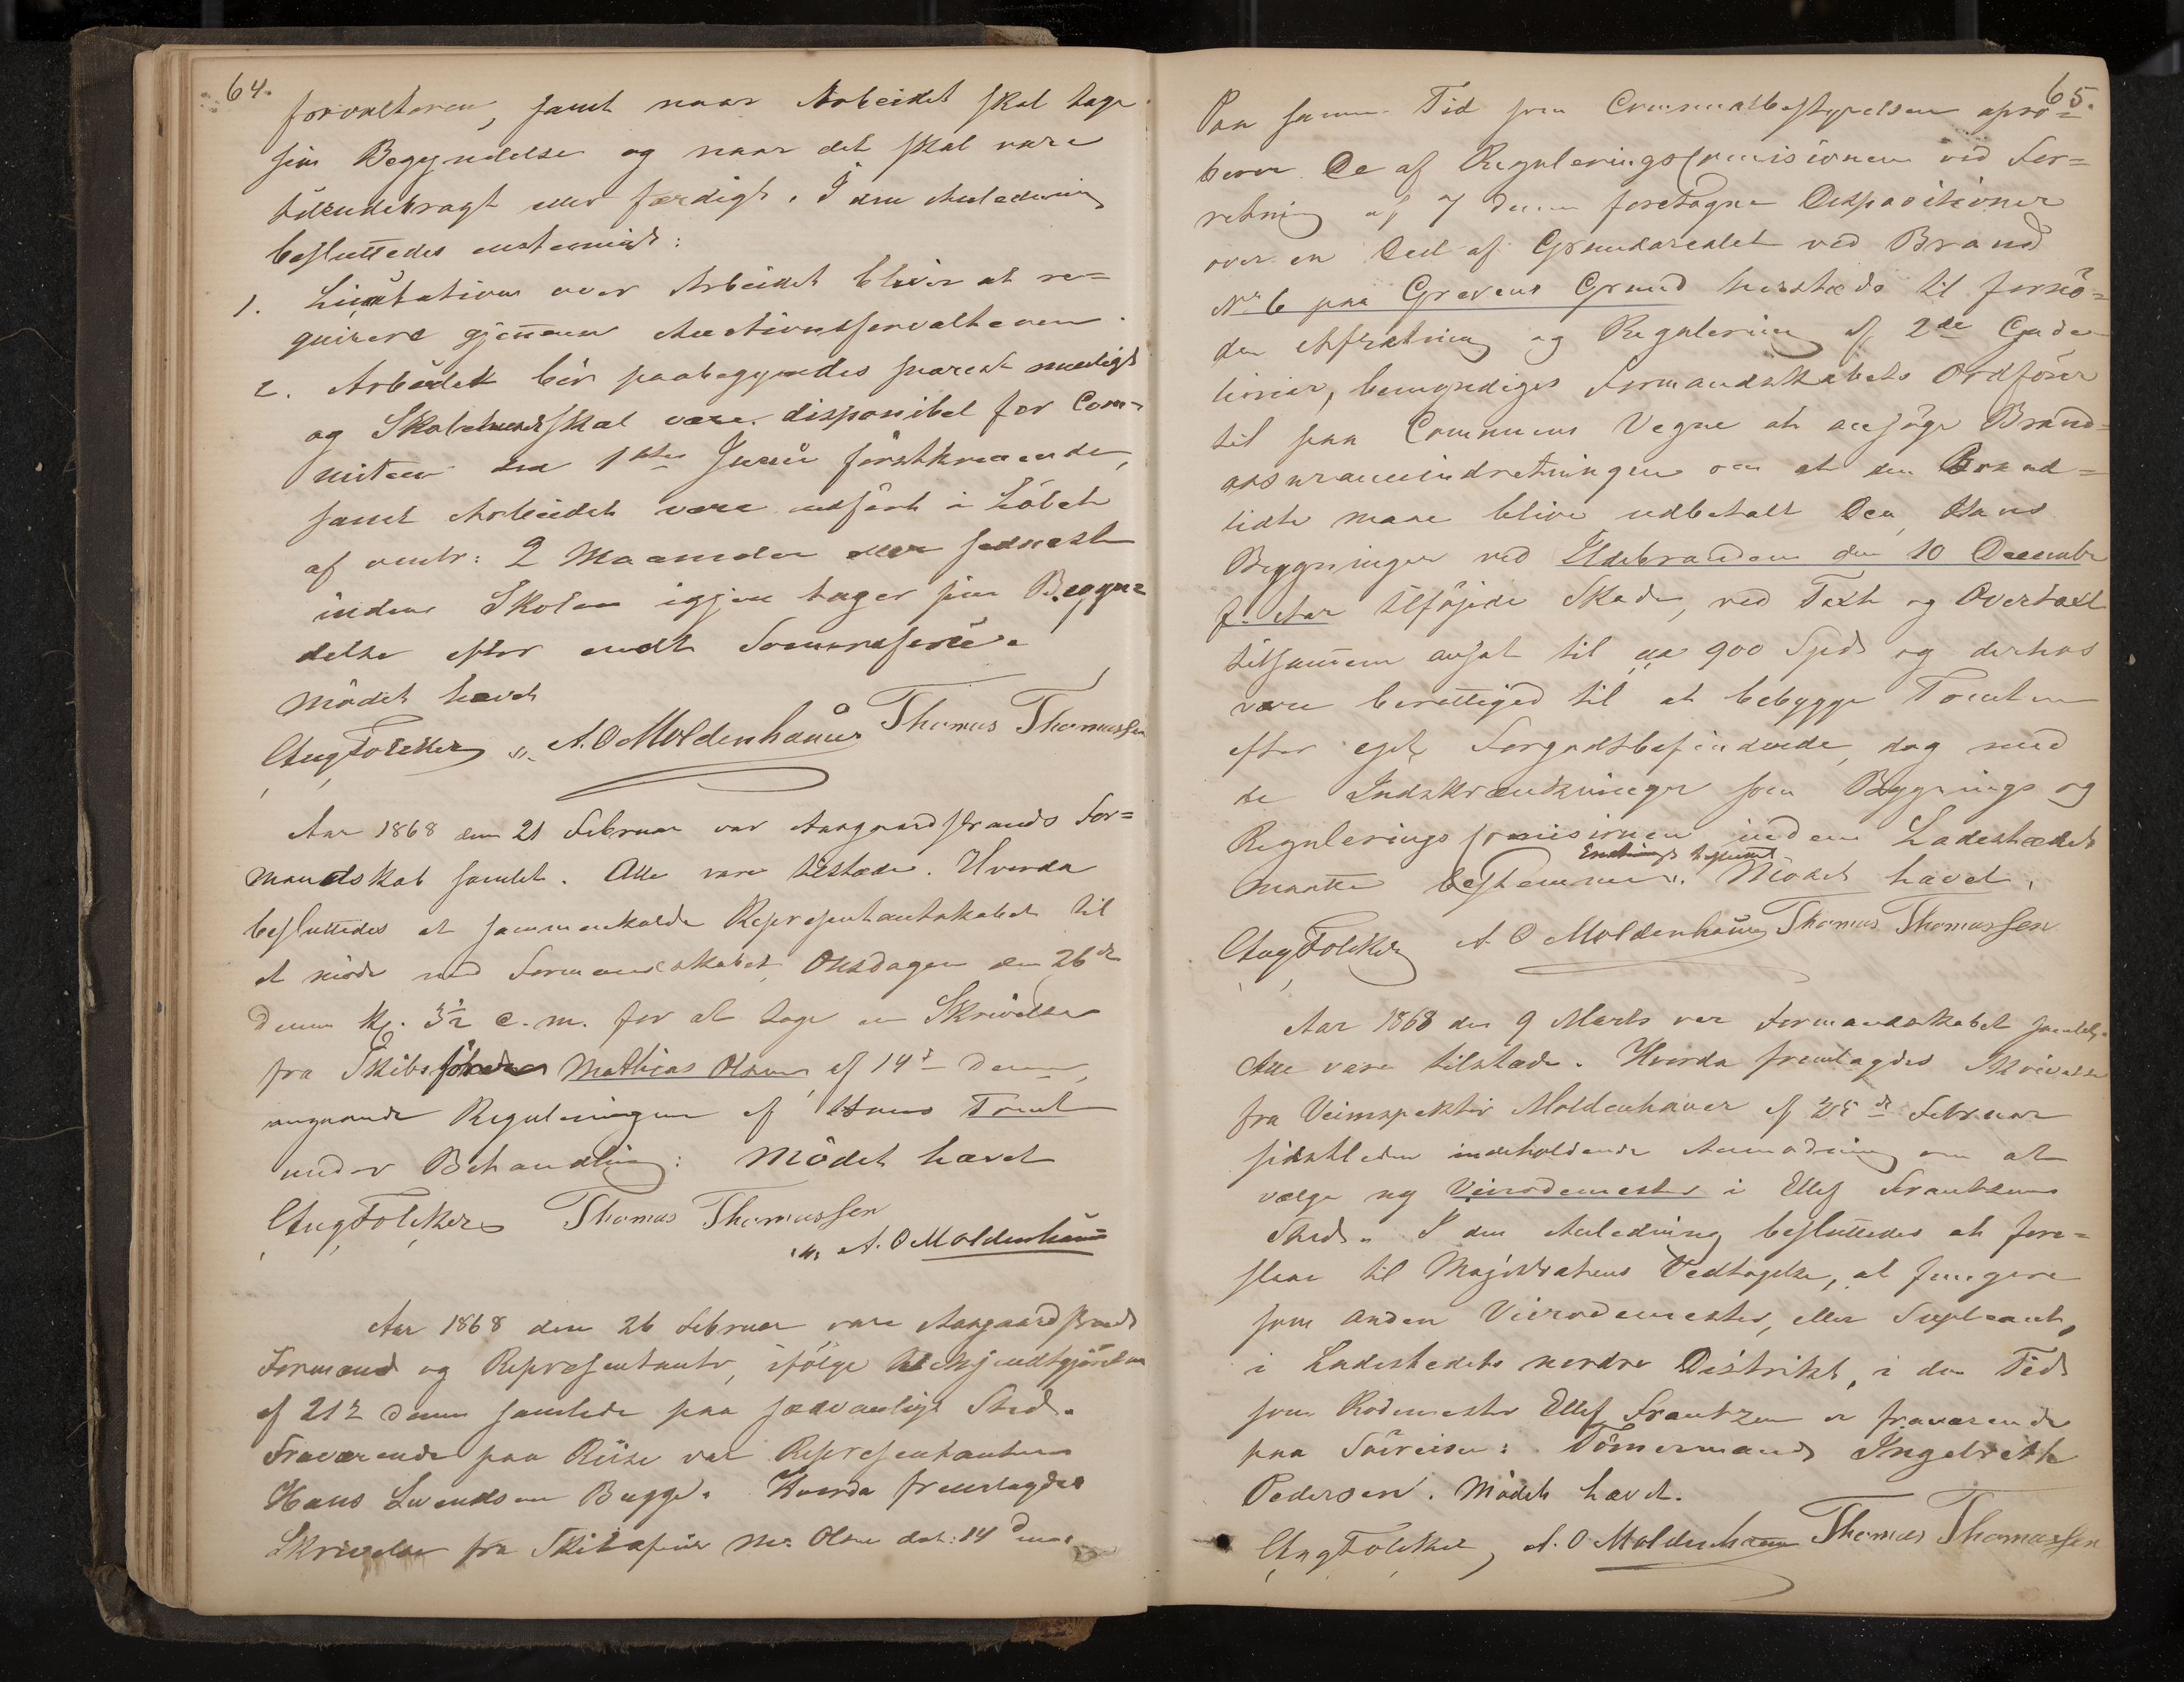 64.
forvalteren, samt naar Arbeidet skal tage
sin Begyndelse og naar det skal være
tilendebragt eller færdigt. I den Anledning
besluttedes eenstemmigt:
1. Licitation over Arbeidet bliver at re=
quirere gjennem Auctionsforvalteren.
2. Arbeidet bör paabegyndes snarest mueligt
og Skolen skal være disponibel for Com-
miteen den 1ste Juni förstkommende,
samt Arbeidet være udfört i Löbet
af omtr: 2 Maaneder eller senest
inden Skolen igjen tager sin Begyn=
delse efter endt Sommerferie.
Mödet hævet
Aug Foleker A. O Moldenhauer Thomas Thomassen
Aar 1868 den 21 Februar var Aasgaardstrands For=
mandskab samlet. Alle vare tilstæde. Hvorda
besluttedes at sammenkalde Repræsentantskabet til
et möde med Formandskabet, Onsdagen den 26de
dennes Kl. 3½ e.m. for at tage en Skrivelse
fra Skibsförer Mathias Olsen af 14de dennes,
angaaende Reguleringen af Hans Tomt
under Behandling: Mödet hævet
Aug Foleker Thomas Thomassen
A. O Moldenhauer
Aar 1868 den 26 Februar vare Aasgaardstrands
Formænd og Repræsentanter, ifölge Bekjendtgjörelse
af 21de dennes samlede paa sædvanligt Sted.
Fraværende paa Reise var Repræsentanten
Hans Svendsen Bugge. Hvorda fremlagdes
Skrivelse fra Skibsförer M. Olsen dat: 14 dennes
65.
Paa samme Tid som Communebestyrelsen apro=
berer De af Reguleringscomisionen ved For=
retning af 7 dennes foretagne Dispositioner
over en Deel af Grundarealet ved Brand
No 6 paa Grevens Grund herstæds til fornö=
den Afretning og Regulering af 2de Gade
linier, bemyndiges Formandskabets Ordförer
til paa Communens Vegne at ansöge Brand=
assuranceindretningen om at den Brand=
lidte maae blive udbetalt Den Hans
Bygninger ved Ildebranden den 10 December
f. Aar tilföiede Skade, ved Taxt og Overtaxt
tilsammen ansat til ca 900 Spd og derhos
være berettiged til at bebygge Tomten
efter eget Forgodtbefindende, dog med
de Indskrænkninger som Bygnings og
Reguleringscomisionen inden Ladestædet
Eenstemmigt besluttet
maatte bestemme. Mödet hævet.
Aug Foleker A. O Moldenhauer Thomas Thomassen
Aar 1868 den 9 Marts var Formandskabet samlet.
Alle vare tilstæde. Hvorda fremlagdes Skrivelse
fra Veiinspektör Moldenhauer af 25de Februar
sidstleden indeholdende Anmodning om at
vælge ny Veirodemester i Ellef Frantzens
Sted. I den Anledning besluttedes at fore=
slaae til Magistratens Vedtagelse, at fungere
som anden Veirodemester, eller Supleant,
i Ladestedets nordre Distrikt, i den Tid
som Rodemester Ellef Frantzen er fraværende
paa Söreiser: Tömermand Ingebret
Pedersen. Mödet hævet.
Aug Foleker, A. O Moldenhauer Thomas Thomassen